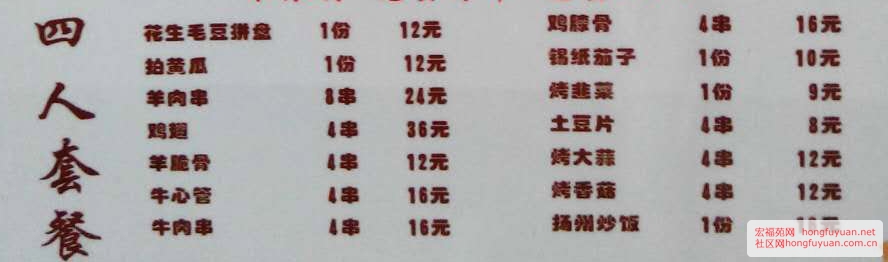 四人套餐
花生毛豆拼盘 1份 12元
拍黄瓜 1份 12元
羊肉串 8串 24元
鸡翅 4串 36元
羊脆骨 4串 12元
牛心管 4串 16元
牛肉串 4串 16元
鸡膝骨 4串 16元
锡纸茄子 1份 10元
烤韭菜 1份 9元
土豆片 4串 8元
烤大蒜 4串 12元
烤香菇 4串 12元
扬州炒饭 1份
宏福苑网 hongfuyuan.net
社区网hongfuyuan.com.cn